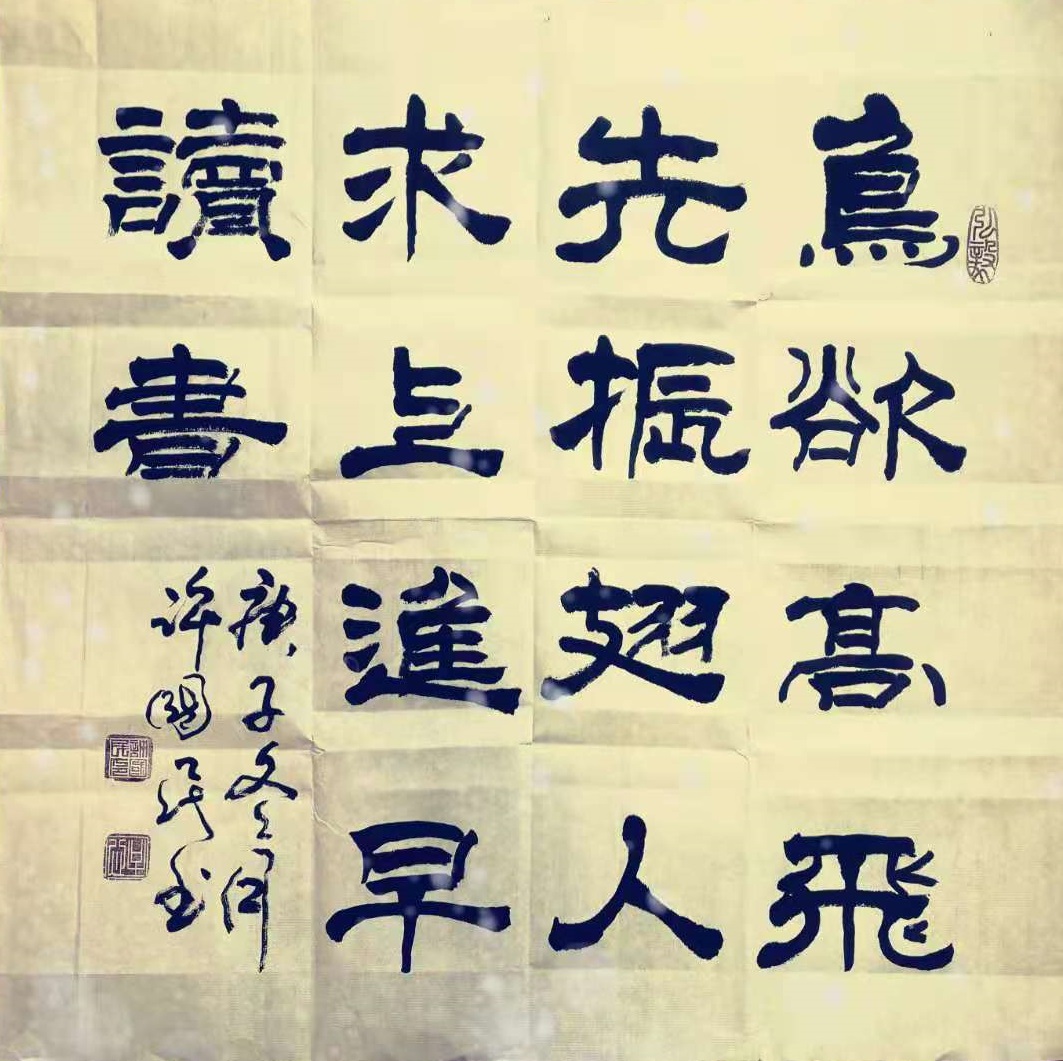 鳥欲高飛
先振翅人
求上進早
讀書
庚子冬月
許國民書